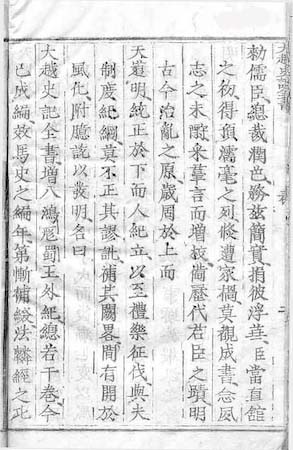 大越史記全書
表
二
勑儒臣總裁潤色務玆簡實捐彼浮華臣當直館
之初得預濡毫之列倏遭家禍莫覩成書念夙
志之未酬采羣言而增校商歷代君臣之蹟明
古今治亂之原歲周於上而
天道明統正於下而人紀立以至禮樂征伐與夫
制度紀綱莫不正其謬訛補其闕略間有開於
風化附臆說以發明名曰
大越史記全書增入鴻厖蜀王外紀總若干卷今
已成編效馬史之編年第慚補綴法麟經之比